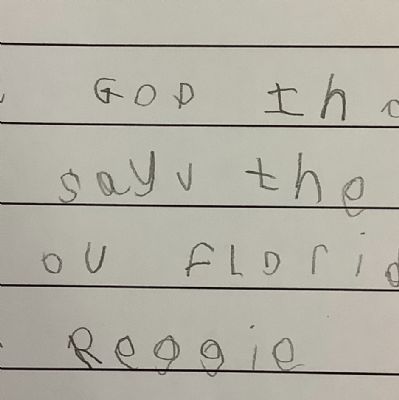 GOD Ih
sayv the
ov FLOrid
Reggie